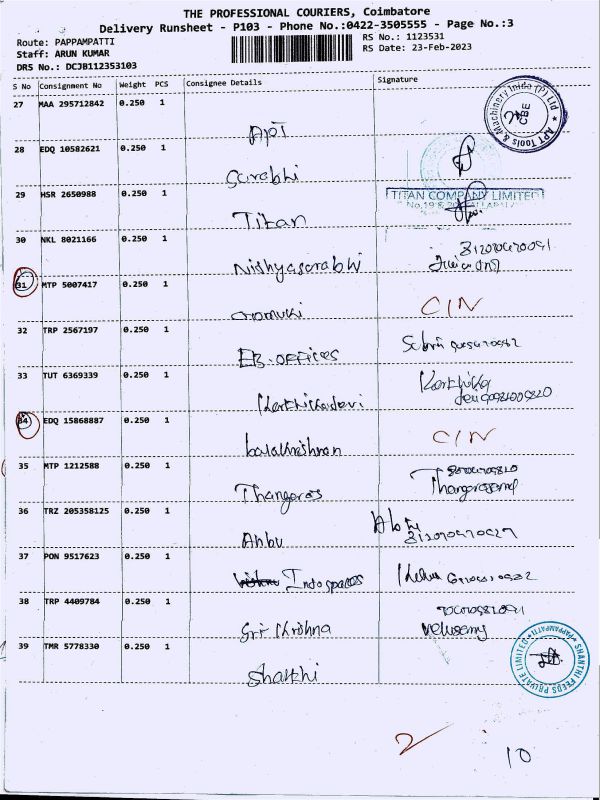 THE PROFESSIONAL COURIERS, Coimbatore
Delivery Runsheet - P103 - Phone No.:0422-3505555 - Page No.:3
Route: PAPPAMPATTI
RS No.: 1123531
Staff: ARUN KUMAR
RS Date: 23-Feb-2023
DRS No.: DCJB112353103
S No Consignment No Weight PCS Consignee Details Signature
27 MAA 295712842 0.250 1
APT
APT Tools & Machinery India (P) Ltd
CBE
28 EDQ 10582621 0.250 1
Sarabhi
29 HSR 2650988 0.250 1
Titan
TITAN COMPANY LIMITED
30 NKL 8021166 0.250 1
Nithyasarabhi
31 MTP 5007417 0.250 1
C/N
32 TRP 2567197 0.250 1
EB-OFFICES
33 TUT 6369339 0.250 1
Karthikadevi
Karthika
34 EDQ 15868887 0.250 1
balakrishnan
C/N
35 MTP 1212588 0.250 1
Thangaras
Thangarasamd
36 TRZ 205358125 0.250 1
Anbu
37 PON 9517623 0.250 1
Indospaces
38 TRP 4409784 0.250 1
Sri Krishna
Velusamy
39 TMR 5778330 0.250 1
Shakthi
SHANTHI FEEDS PRIVATE LIMITED
PAPPAMPATTI
2
10